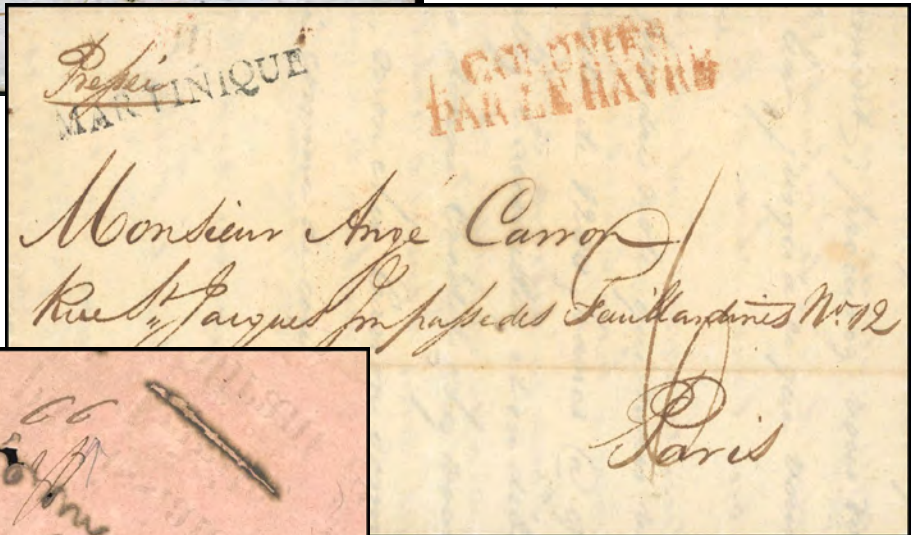 Pressée
MARTINIQUE
COLONIES
PAR LE HAVRE
Monsieur Ange Carron
Rue St. Jacques Impasse des Feuillantines No. 12
16
Paris
66